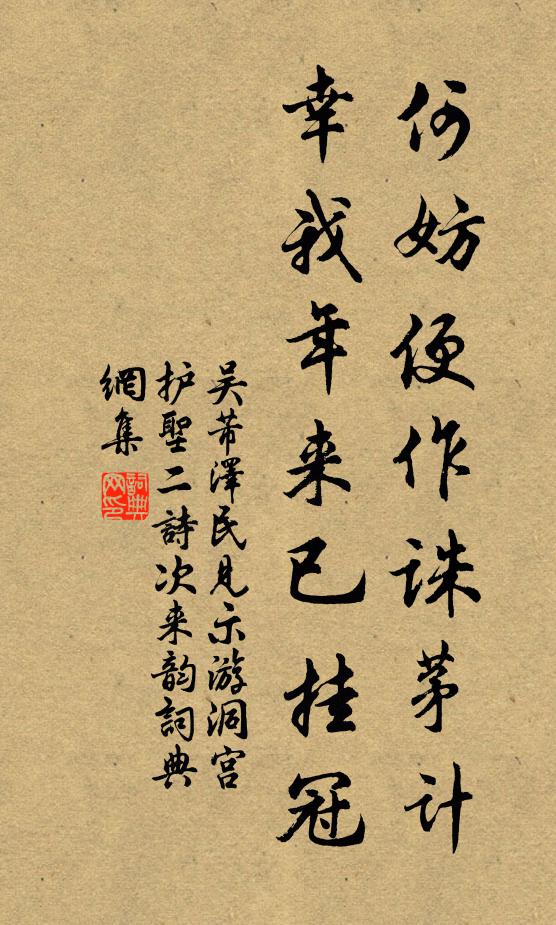 何妨便作诛茅计
幸我年来已挂冠
吴芾澤民見示游洞宫
护聖二詩次来韵詞典
網集
詞典網印